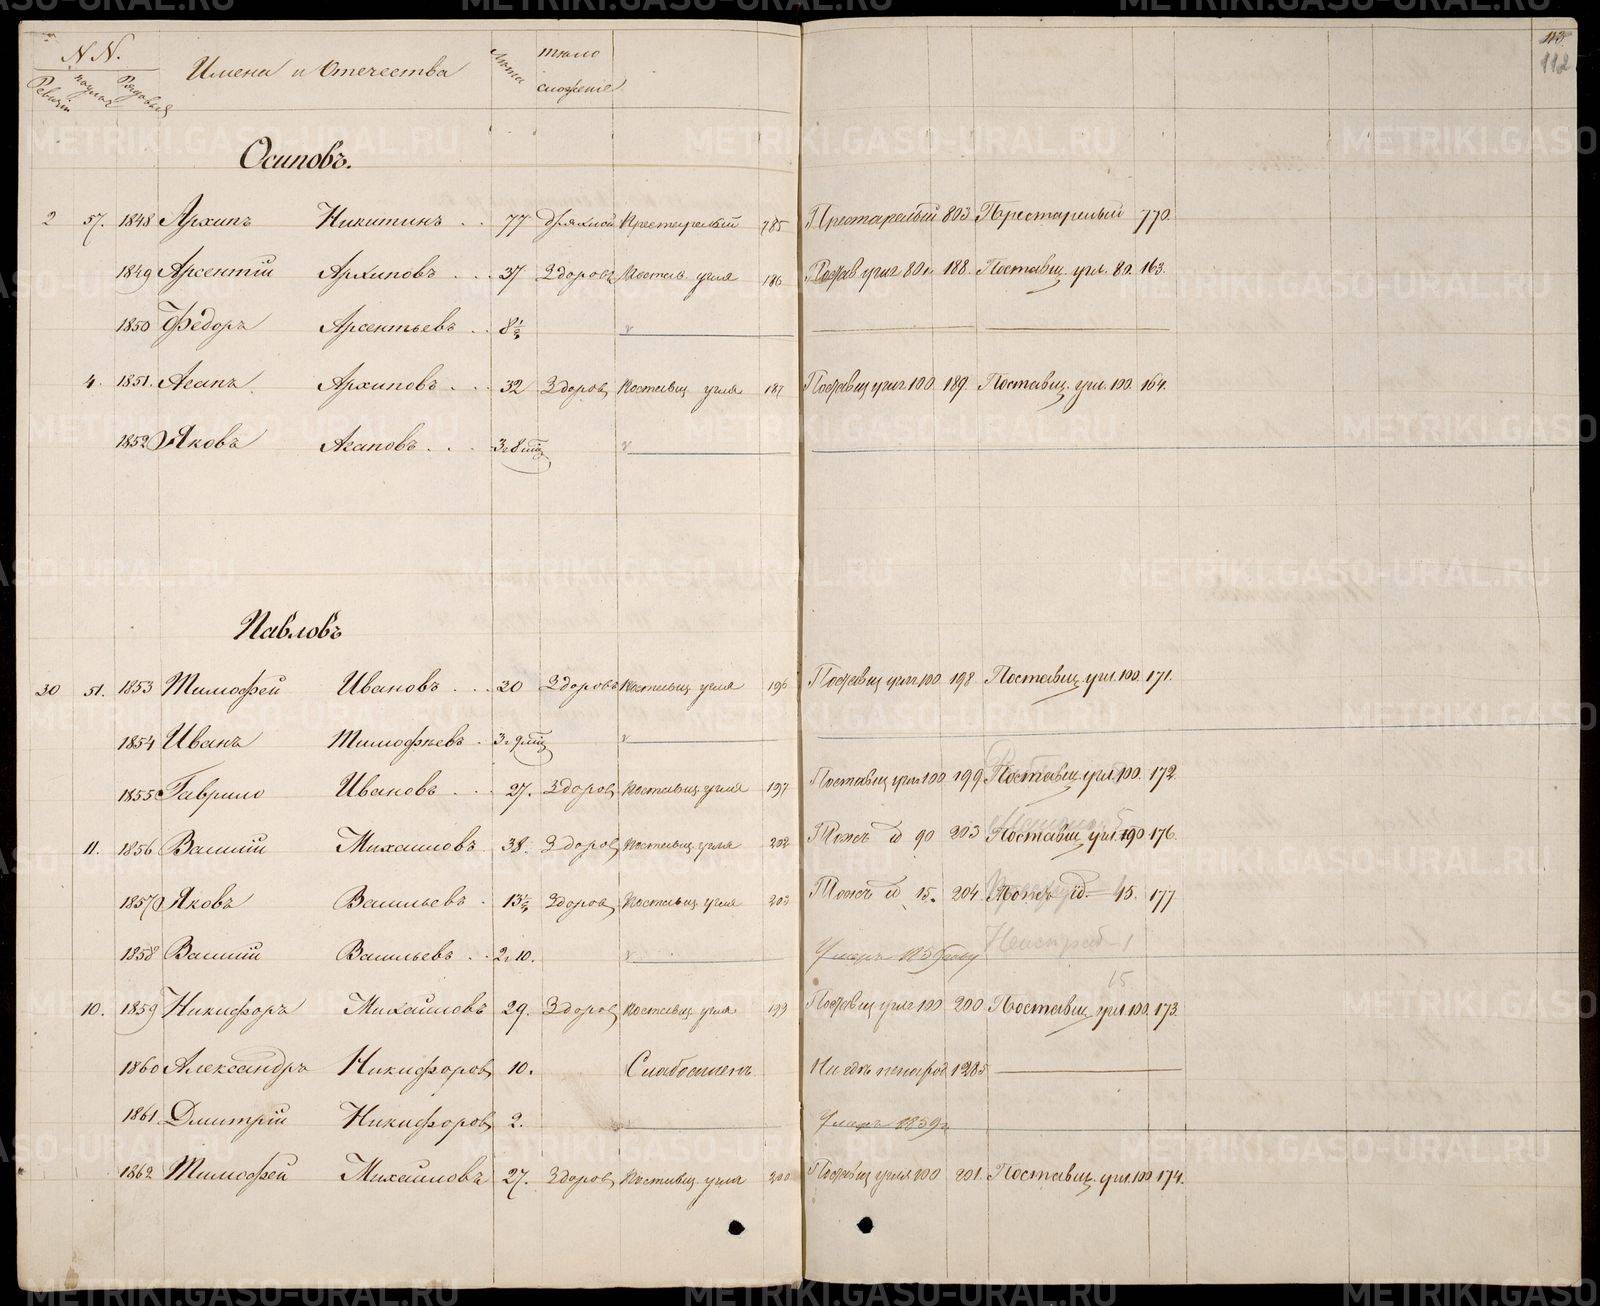 N N.
Ревизiи
Рядовыя
Имена и Отечества
Лѣта
тѣло
сложенiе
113
112
Осиповъ.
2 57. 1848 Архипъ Никитинъ . . 77 дряхлой Престарелый 785 Престарелый 803 Престарелый 770.
1849 Арсентiй Архиповъ . . . 37 Здоровъ Постав угля 186 188. Поставщ. угл. 80. 163.
1850 Федоръ Арсентьевъ . . 8½
4. 1851. Агапъ Архиповъ . . . 32 Здоровъ Поставщ угля 187 Поставщ угля 100. 189. Поставщ. угл. 100. 164.
1852 Яковъ Агаповъ . . . 3 г 8 мц
Павловъ
30 51. 1853 Тимофей Ивановъ . . . 30 Здоровъ Поставщ угля 196 Поставщ угля 100 198 Поставщ. угл. 100. 171.
1854 Иванъ Тимофѣевъ . 3 г 9 мц
1855 Гаврило Ивановъ . . . 27. Здоровъ Поставщ угля 197 Поставщ угля 100 199 Поставщ. угл. 100. 172
11. 1856 Василiй Михаиловъ 38. Здоровъ Поставщ угля 202 Тожъ id 90 203 Поставщ угл. 190 176.
1857 Яковъ Васильевъ . 13½ Здоровъ Поставщ угля 203 Тожъ id 15. 204 id. 15. 177
1858 Василiй Васильевъ . . 2 г 10. Умеръ
15
10. 1859 Никифоръ Михаиловъ 29. Здоровъ Поставщ угля 199 Поставщ угля 100 200 Поставщ угл 100. 173.
1860 Александръ Никифоровъ 10. Слабосиленъ 1285
1861 Дмитрiй Никифоровъ 2. Умеръ 1859 г
1862 Тимофей Михаиловъ 27. Здоровъ Поставщ угля 200 Поставщ угля 100 201. Поставщ. угл. 100 174.
METRIKI.GASO-URAL.RU